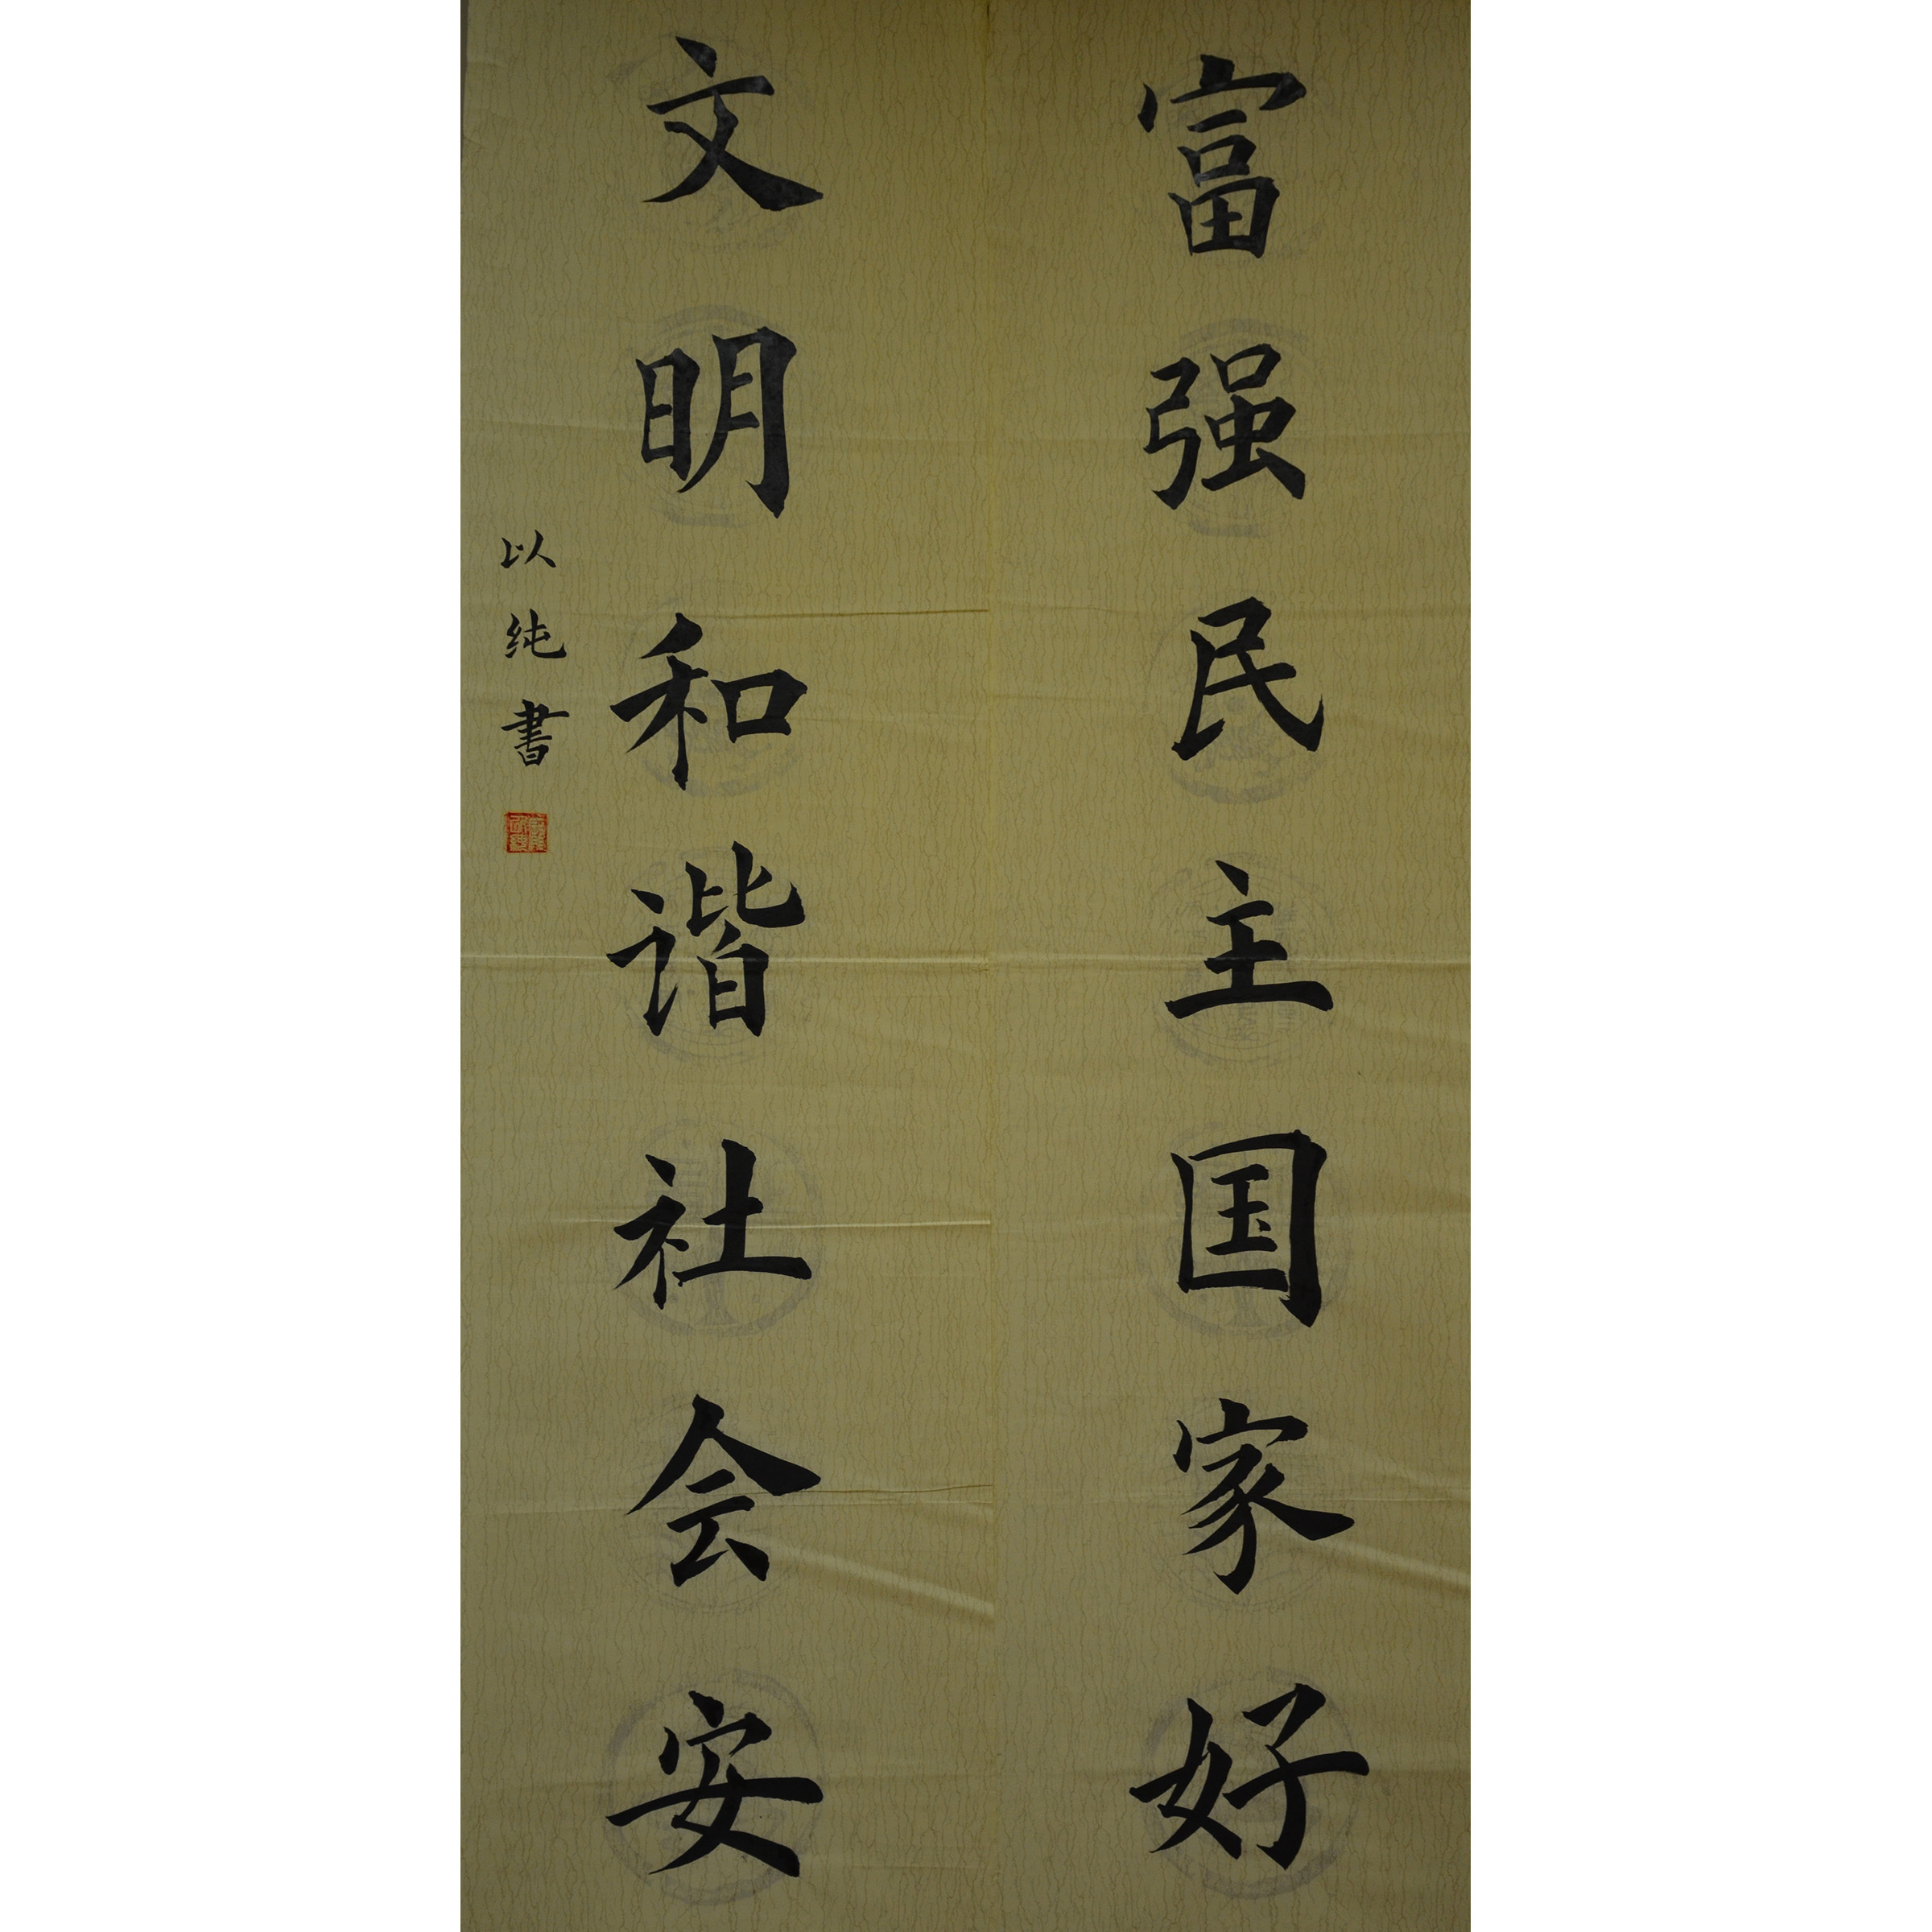 富强民主国家好
文明和谐社会安
以纯書